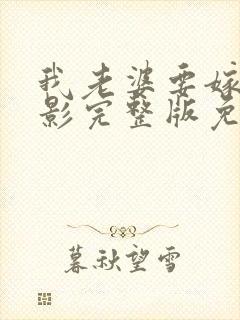 我老婆要嫁
影完整版免
暮秋望雪